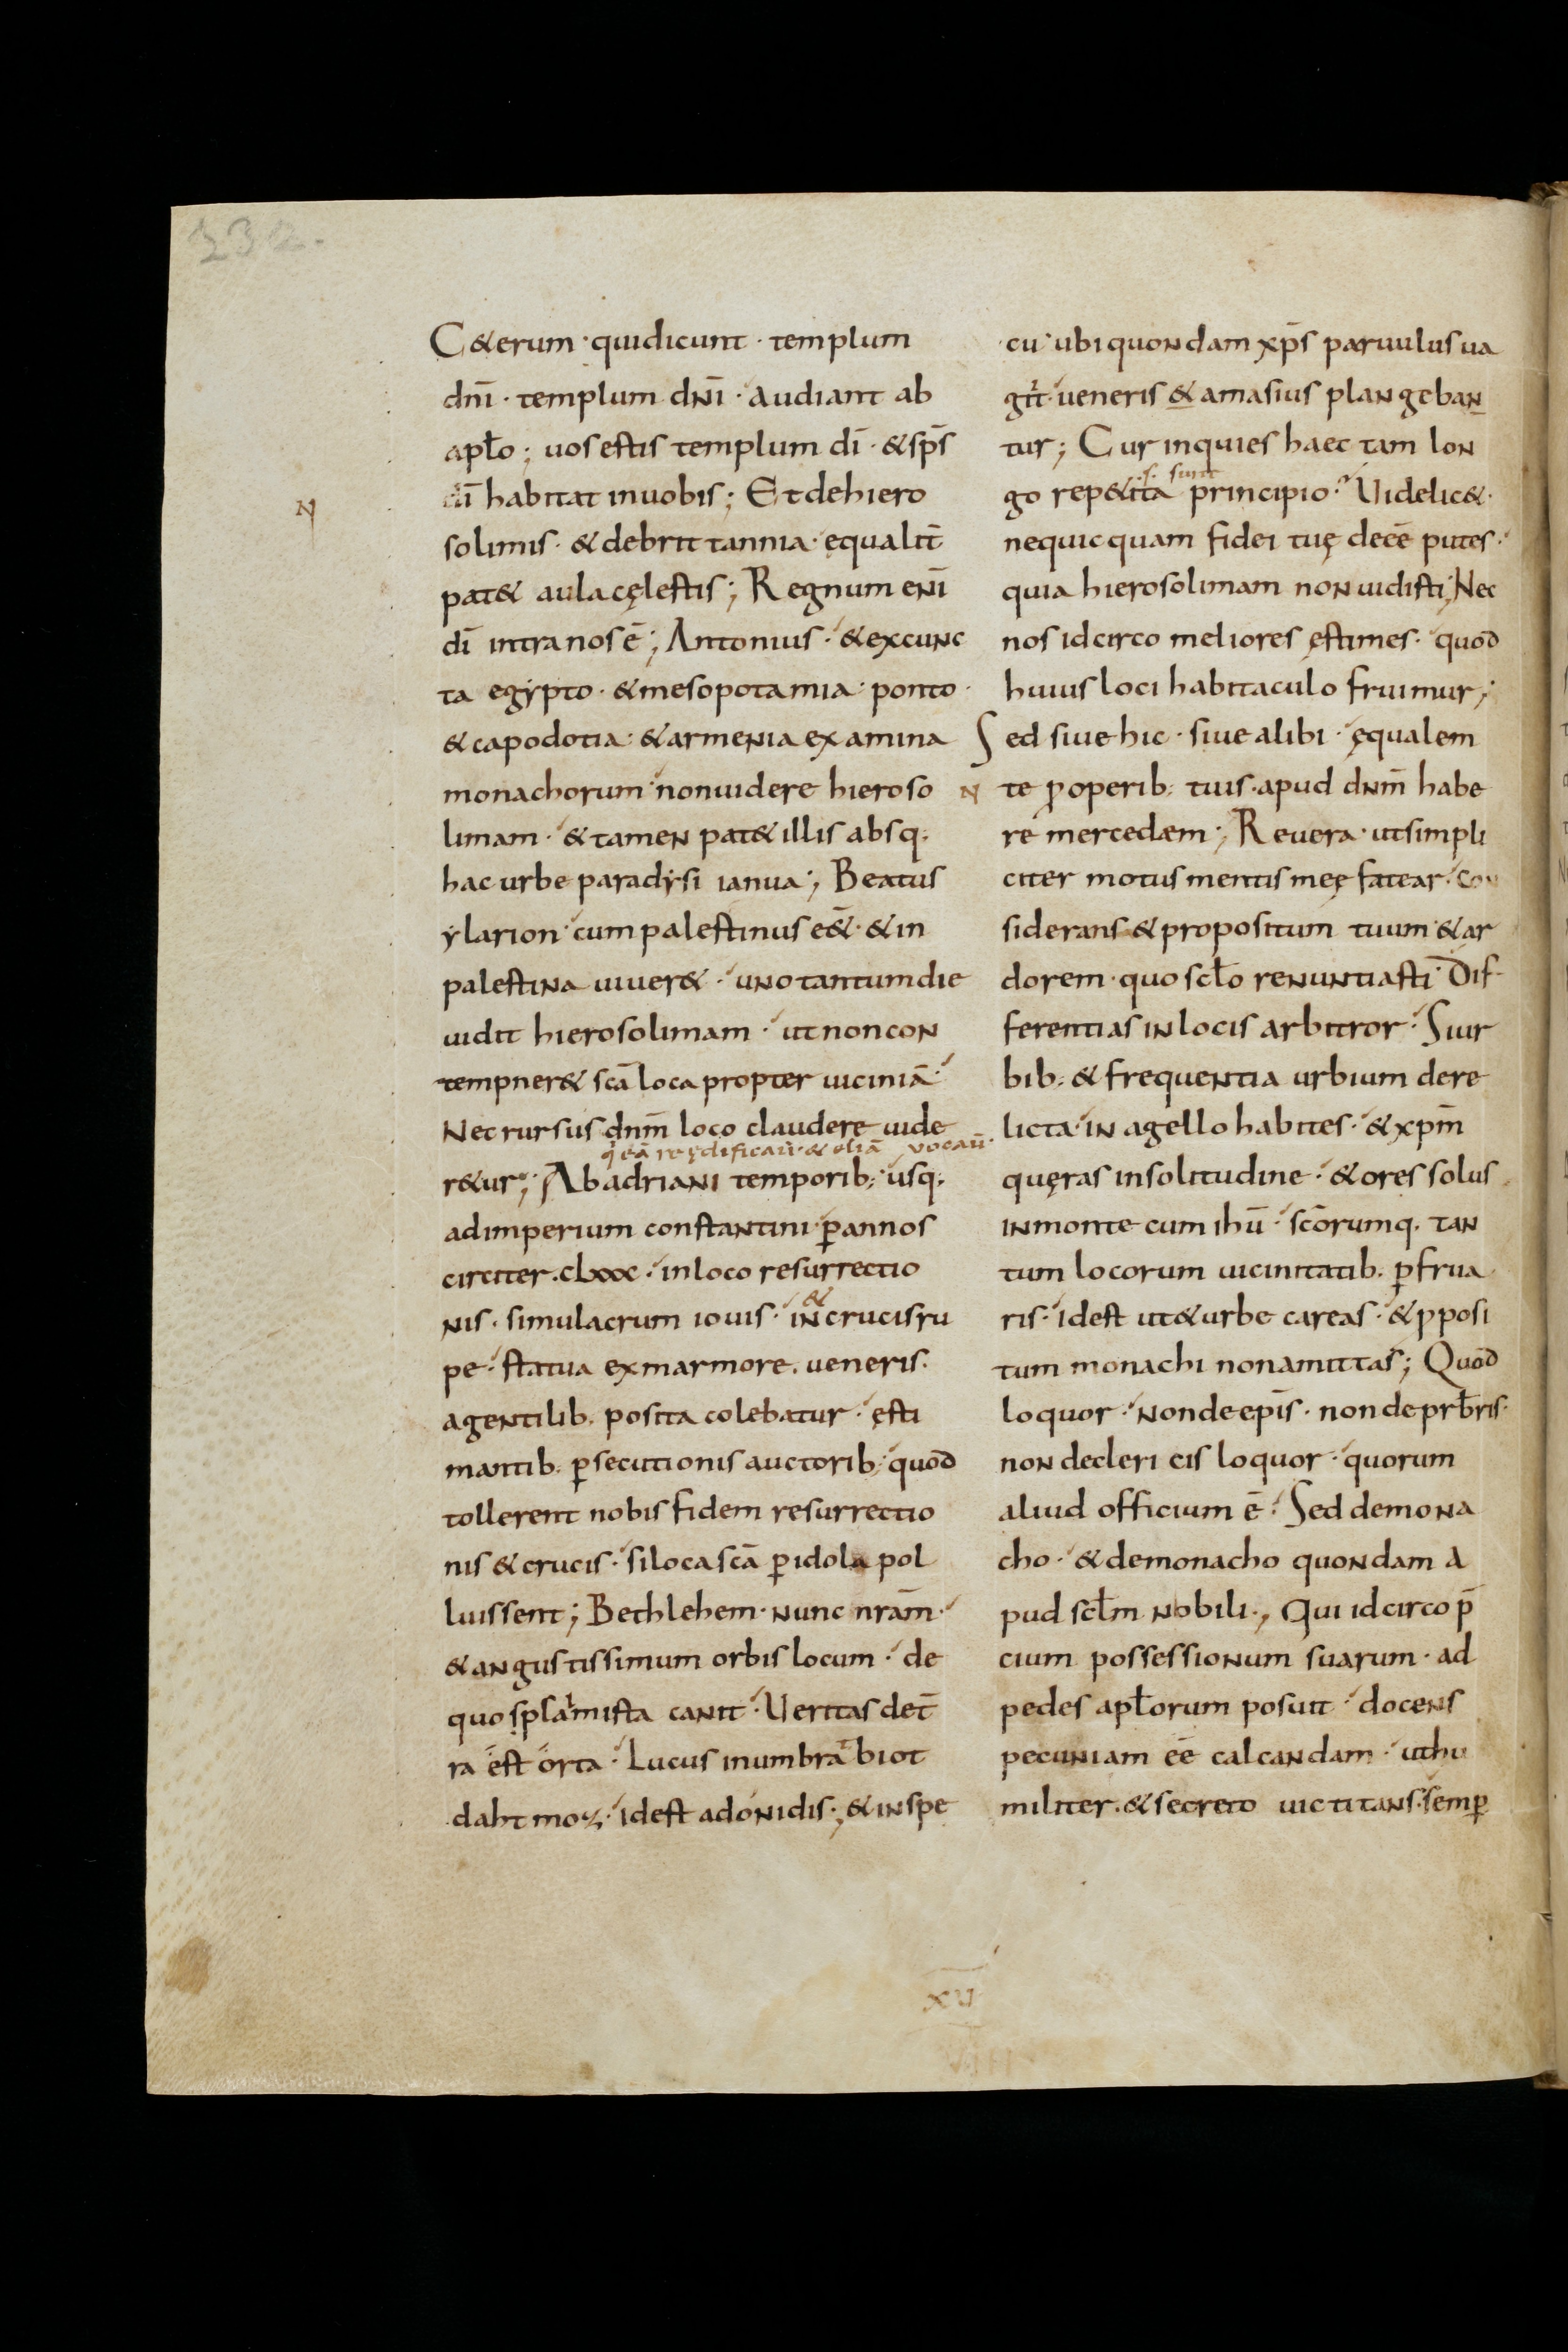 232.
C&erum · quidicunt · templum
dnī · templum dNī · audiant ab
apło ; uos estis templum dī · & sp̄s
dī habitat inuobis ; Et dehiero
N
solimis · & debrittannia · equalit̄
pat& aula cęlestis ; Regnum enī
dī intra nos ē ; Antonius · & excunc
ta egypto · & mesopotamia · ponto ·
& capodotia · & armenia examina
monachorum · nonuidere hieroso
limam · & tamen pat& illis absq;
hac urbe paradysi ianua ; Beatus
ylarion · cum palestinus e&̄ · & in
palestina uiuer& · uno tantum die
uidit hierosolimam · ut non con
tempner& scā loca propter uiciniā ·
Nec rursus dnm̄ loco claudere uide
q eā reędificaū · & eliā uocaū ·
r&ur ; Ab adriani temporib; · usq;
ad imperium constantini · p̱ annos
circiter · clxxx · in loco resurrectio
&
nis · simulacrum iouis · in crucis ru
pe · statua ex marmore · ueneris ·
agentilib; posita colebatur · ęsti
mantib; p̱secutionis auctorib; · quod̄
tollerent nobis fidem resurrectio
nis & crucis · si loca scā p̱ idola pol
luissent ; Bethlehem · nunc nrām ·
& angustissimum orbis locum · de
quo splamista canit · Ueritas det̄
ra est orta · Lucus inumbrabiot
daht moz · idest adonidis ; & inspe
cu · ubi quondam xp̄s paruulus ua
giit · ueneris & amasius plangeban
tur ; Cur inquies haec tam lon
s. sunt
go rep&ita principio · Uidelic& ·
nequicquam fidei tuę deēē putes ·
quia hierosolimam non uidisti ; Nec
nos idcirco meliores ęstimes · quod̄
huius loci habitaculo fruimur ;
Sed siue hic · siue alibi · ęqualem
N
te p̱ operib; tuis · apud dnm̄ habe
re mercedem ; Reuera · ut simpli
citer motus mentis meę fatear · con
siderans & propositum tuum & ar
dorem · quo scło renuntiasti · Dif
ferentias in locis arbitror · Si ur
bib; & frequentia urbium dere
licta · in agello habites · & xpm̄
quęras in solitudine · & ores solus
in monte cum ihū · scōrumq; tan
tum locorum uicinitatib; p̱frua
ris · idest ut & urbe careas · & pposi
tum monachi non amittas ; Quod̄
loquor · non de epīs · non de prb̄ris ·
non de clericis loquor · quorum
aliud officium ē · Sed de mona
cho · & de monacho quondam a
pud scłm nobili ; Qui idcirco p̄
cium possessionum suarum · ad
pedes apłorum posuit · docens
pecuniam eē calcandam · ut hu
militer · & secreto uictitans · semp̱
XV